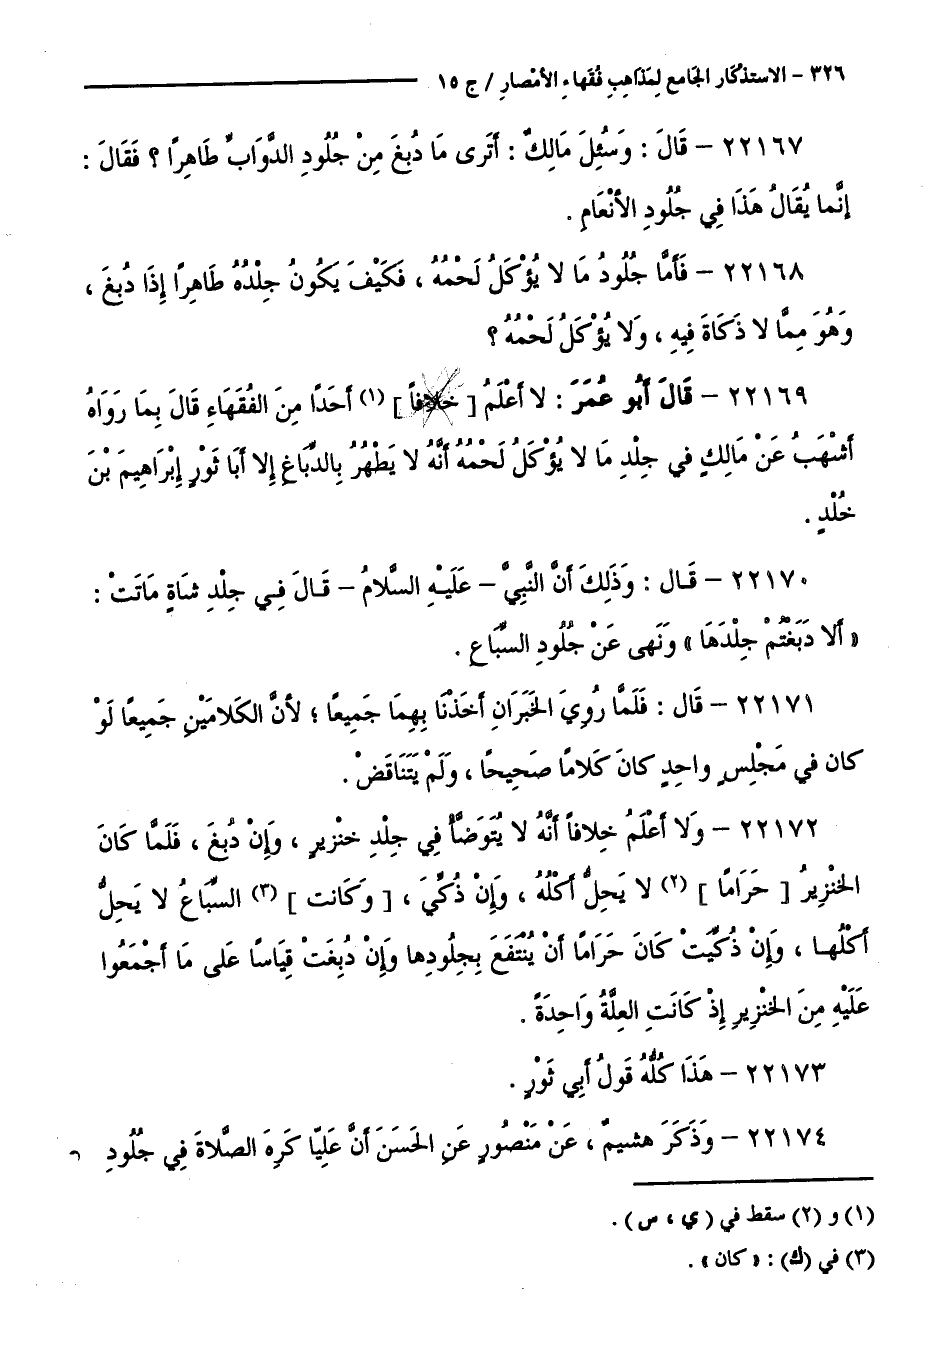 ٣٢٦ – الاستذكار الجامع لمذاهب فقهاء الأمصار / ج ١٥
٢٢١٦٧ – قَالَ : وَسُئِلَ مَالِكٌ : أَتَرى مَا دُبِغَ مِنْ جُلُودِ الدَّوَابِّ طَاهِرًا ؟ فَقَالَ :
إِنَّما يُقَالُ هَذَا فِي جُلُودِ الأَنْعَامِ .
٢٢١٦٨ – فَأَمَّا جُلُودُ مَا لا يُؤْكَلُ لَحْمُهُ ، فَكَيْفَ يَكُونُ جِلْدُهُ طَاهِرًا إِذَا دُبِغَ ،
وَهُوَ مِمَّا لا ذَكَاةَ فِيهِ ، وَلا يُؤْكَلُ لَحْمُهُ ؟
٢٢١٦٩ – قَالَ أَبُو عُمَرَ : لا أَعْلَمُ [ خلافاً ] (١) أَحَدًا مِنَ الفُقَهَاءِ قَالَ بِمَا رَوَاهُ
أَشْهَبُ عَنْ مَالِكٍ في جِلْدِ مَا لا يُؤْكَلُ لَحْمُهُ أَنَّهُ لا يَطْهُرُ بِالدِّبَاغِ إِلا أَبَا ثَوْرٍ إِبْرَاهِيمَ بْنَ
خُلْدٍ .
٢٢١٧٠ – قَـال : وَذَلِكَ أَنَّ النَّبِيَّ – عَلَيْـهِ السَّلامُ – قَـالَ فِـي جِلْدِ شَاةٍ مَاتَتْ :
« أَلا دَبَغْتُمْ جِلْدَهَا » وَنَهى عَنْ جُلُودِ السِّبَاعِ .
٢٢١٧١ – قَال : فَلَمَّا رُوِيَ الخَبَرَانِ أَخَذْنَا بِهِمَا جَمِيعًا ؛ لأَنَّ الكَلامَيْنِ جَمِيعًا لَوْ
كان في مَجْلِسٍ واحِدٍ كانَ كَلامًا صَحِيحًا ، وَلَمْ يَتَنَاقَضْ .
٢٢١٧٢ – وَلا أَعْلَمُ خلافاً أَنَّهُ لا يُتَوَضَّأُ فِي جِلْدِ خنْزيرٍ ، وَإِنْ دُبغَ ، فَلَمَّا كَانَ
الخنْزِيرُ [ حَرَامًا ] (٢) لا يَحِلُّ أَكْلُهُ ، وَإِنْ ذُكِّيَ ، [ وكَانت ] (٣) السِّبَاعُ لا يَحِلُّ
أَكْلُهـا ، وَإِنْ ذُكِّيَتْ كَانَ حَرَامًا أَنْ يُنْتَفَعَ بِجلُودِها وَإِنْ دُبِغَتْ قِيَاسًا عَلى مَا أَجْمَعُوا
عَلَيْهِ مِنَ الخنْزِيرِ إِذْ كَانَتِ العِلَّةُ وَاحِدَةً .
٢٢١٧٣ – هَذَا كُلُّهُ قَولُ أَبِي ثَوْرٍ .
٢٢١٧٤ – وَذَكَرَ هشيمٌ ، عَنْ مَنْصُورٍ عَنِ الحَسَنَ أَنَّ عَلِيّا كَرِهَ الصَّلاةَ فِي جُلُودِ
(١) و (٢) سقط في ( ي ، س ) .
(٣) في (ك) : « كان » .